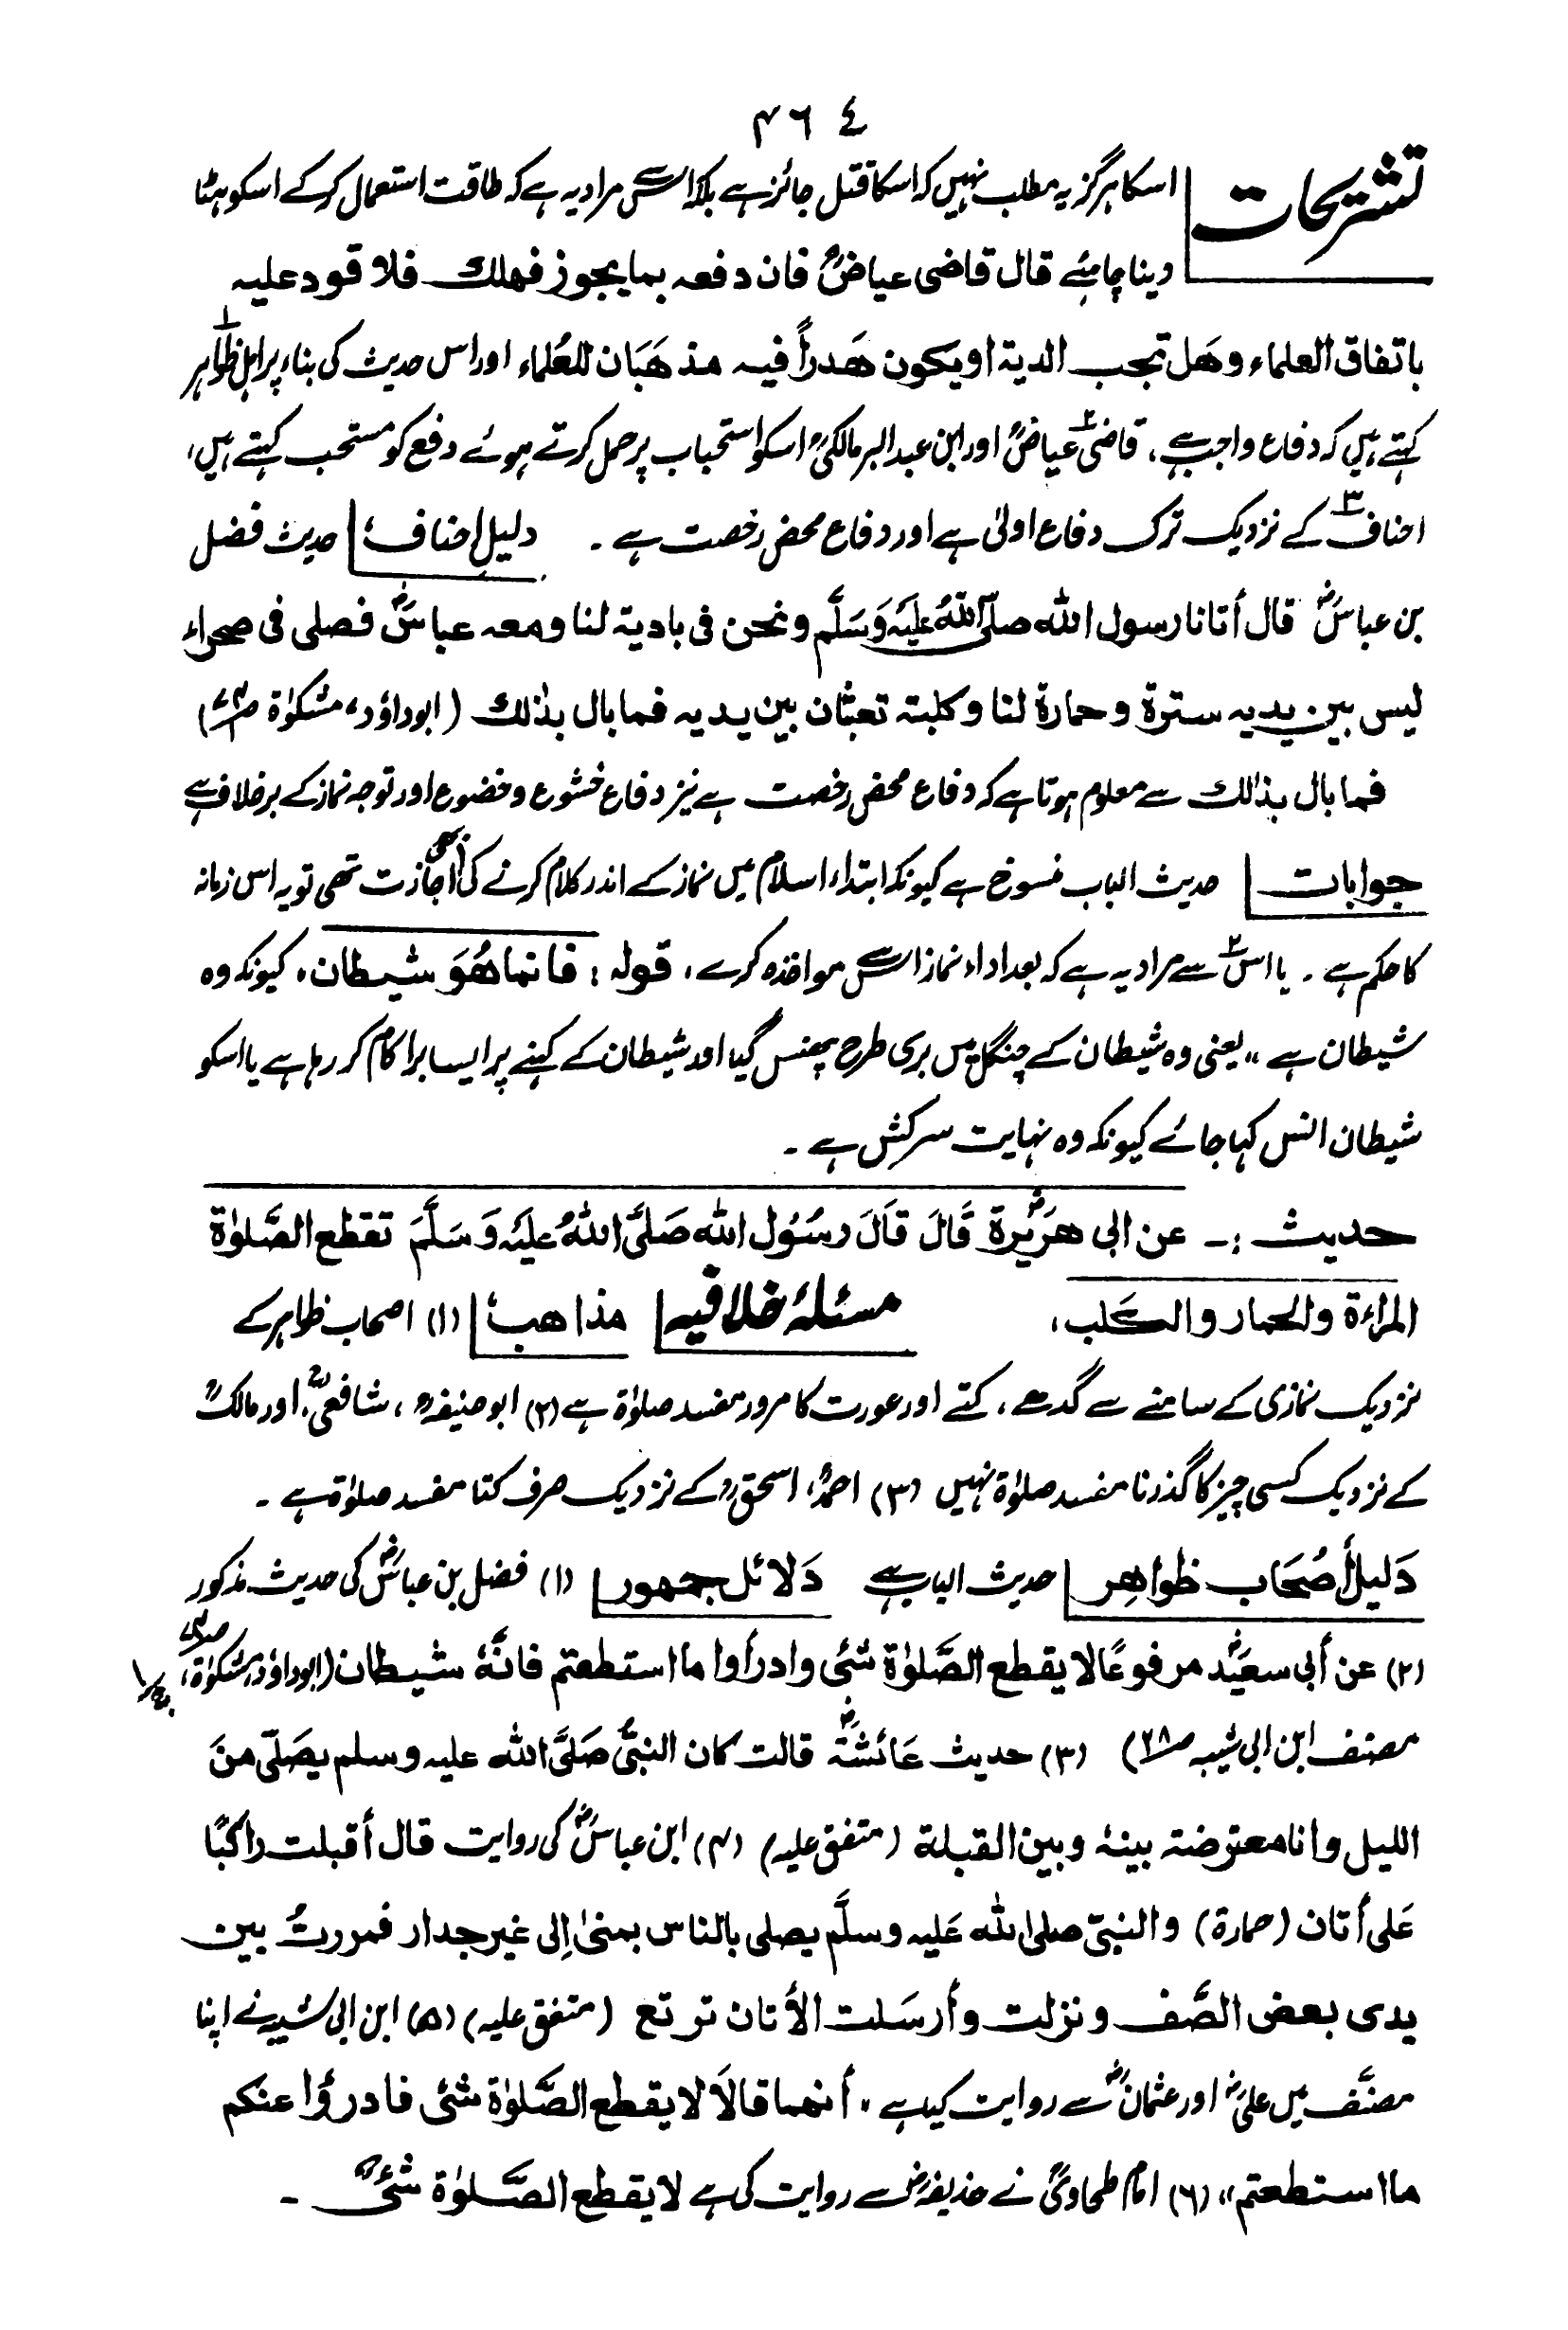 ۴۶۴
تشریحات | اسکا ہرگز یہ مطلب نہیں کہ اسکا قتل جائز ہے بلکہ اس سے مراد یہ ہے کہ طاقت استعمال کر کے اسکو ہٹا
دینا چاہئے قال قاضی عیاضؒ فان دفعہ بما یجوز فهلك فلا قود علیہ
باتفاق العلماء وهَل تجب الدیة او یکون هَدراً فیہ مذهَبَان للعُلماء اور اس حدیث کی بناء پر اہل ظواہر
کہتے ہیں کہ دفاع واجب ہے، قاضی عیاضؒ اور ابن عبد البر مالکیؒ اسکو استحباب پر حمل کرتے ہوئے دفع کو مستحب کہتے ہیں،
احناف کے نزدیک ترک دفاع اولیٰ ہے اور دفاع محض رخصت ہے ۔ دلیل احناف | حدیث فضل
بن عباسؓ قال أتانا رسول اللہ صلّی اللہُ علیَہ وَسَلَّم ونحن فی بادیة لنا ومعہ عباسؓ فصلی فی صحراء
لیس بین یدیہ سترة وحمارة لنا وکلبتہ تعبثان بین یدیہ فما بال بذٰلك (ابوداؤد، مشکوٰة
فما بال بذٰلك سے معلوم ہوتا ہے کہ دفاع محض رخصت ہے نیز دفاع خشوع وخضوع اور توجہ نماز کے برخلاف ہے
جوابات | حدیث الباب منسوخ ہے کیونکہ ابتداء اسلام میں نماز کے اندر کلام کرنے کی اجازت تھی تو یہ اس زمانہ
کا حکم ہے ۔ یا اس سے مراد یہ ہے کہ بعد اداء نماز اس سے مواخذہ کرے، قولہ : فانما هُوَ شیطان، کیونکہ وہ
شیطان ہے ،، یعنی وہ شیطان کے چنگل میں بری طرح پھنس گیا اور شیطان کے کہنے پر ایسا برا کام کر رہا ہے یا اسکو
شیطان انس کہا جائے کیونکہ وہ نہایت سرکش ہے ۔
حدیث :۔ عن ابی هرَیُرةؓ قَالَ قَالَ رسُوُل اللہ صَلَّی اللہُ علیَہ وَسَلَّمَ تقطع الصَّلوٰة
المرأة والحمار والکَلب، مسئلۂ خلافیہ | مذاهب | (۱) اصحاب ظواہر کے
نزدیک نمازی کے سامنے سے گدھے، کتے اور عورت کا مرور مفسد صلوٰة ہے (۲) ابوحنیفہؒ، شافعیؒ، اور مالکؒ
کے نزدیک کسی چیز کا گذرنا مفسد صلوٰة نہیں (۳) احمدؒ، اسحقؒ کے نزدیک صرف کتا مفسد صلوٰة ہے ۔
دَلیل أصُحَاب ظواهِر | حدیث الباب ہے دَلائل جمهور | (۱) فضل بن عباسؓ کی حدیث مذکور
(۲) عن أبی سعیَدؓ مرفوعًا لا یقطع الصَّلوٰة شئی وادرأوا ما استطعتم فانَّہٗ شیطان (ابوداؤد، مشکوٰة،
مصنف ابن ابی شیبہ ص۲۸۰) (۳) حدیث عَائشَةؓ قالت کان النبیُّ صَلَّی اللہ علیہ وسلم یصَلّی منَ
اللیل وانا معترضتہ بینہٗ وبین القبلة (متفق علیہ) (۴) ابن عباسؓ کی روایت قال أقبلت راکبًا
عَلی أتان (حمارة) والنبیّ صلی اللہ عَلیہ وسلَّم یصلی بالناس بمنیٰ إلی غیر جدار فمررتُ بین
یدی بعض الصَّف ونزلت وأرسَلت الأتان ترتع (متفق علیہ) (۵) ابن ابی شیبہ نے اپنا
مصنَّف میں علیؓ اور عثمانؓ سے روایت کیا ہے ،، أنهما قالاَ لا یقطع الصَّلوٰة شئی فادرؤا عنکم
ما استطعتم،، (۶) امام طحاویؒ نے حذیفہؓ سے روایت کی ہے لا یقطع الصَّلوٰة شئیٌ ۔